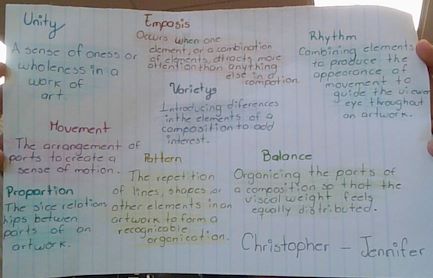 Unity
A sense of oness or
wholeness in a
work of
art.
Empasis
Occurs when one
element, or a combination
of elements, attracts more
attention than anything
else in a
compotion.
Rhythm
Combining elements
to produce the
appearance of
movement to
guide the viewer
eye throughout
an artwork.
Varietys
Introducing diferences
in the elements of a
composition to add
interest.
Movement
The arrangement of
parts to create a
sense of motion.
Pattern
The repetition
of lines, shapes, or
other elements in an
artwork to form a
recognicable
organication.
Balance
Organicing the parts of
a composition so that the
viscal weight feels
equally distributed.
Proportion
The sice relations
hips betwen
parts of an
artwork.
Christopher - Jennifer